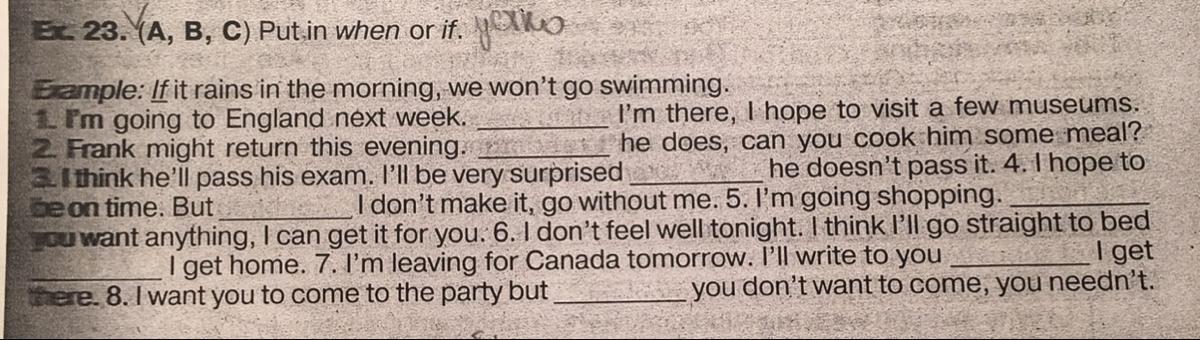 Ex. 23. (A, B, C) Put in when or if. устно
Example: If it rains in the morning, we won't go swimming.
1. I'm going to England next week. ________ I'm there, I hope to visit a few museums.
2. Frank might return this evening. ________ he does, can you cook him some meal?
3. I think he'll pass his exam. I'll be very surprised ________ he doesn't pass it. 4. I hope to
be on time. But ________ I don't make it, go without me. 5. I'm going shopping. ________
you want anything, I can get it for you. 6. I don't feel well tonight. I think I'll go straight to bed
________ I get home. 7. I'm leaving for Canada tomorrow. I'll write to you ________ I get
there. 8. I want you to come to the party but ________ you don't want to come, you needn't.